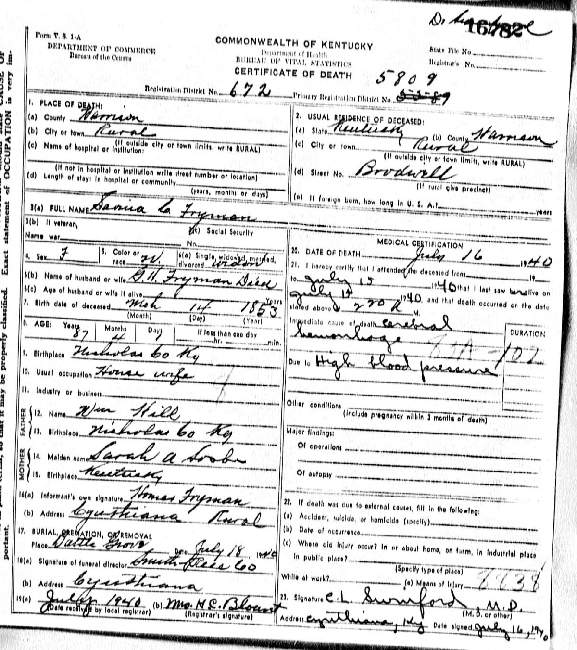 16782
Form V. S. 1-A
DEPARTMENT OF COMMERCE
Bureau of the Census
COMMONWEALTH OF KENTUCKY
Department of Health
BUREAU OF VITAL STATISTICS
CERTIFICATE OF DEATH
State File No.
Registrar's No.
Registration District No. 672
Primary Registration District No. 5809
1. PLACE OF DEATH:
(a) County Harrison
(b) City or town Rural
(If outside city or town limits, write RURAL)
(c) Name of hospital or institution:
(If not in hospital or institution write street number or location)
(d) Length of stay: In hospital or community
(years, months or days)
2. USUAL RESIDENCE OF DECEASED:
(a) State Kentucky (b) County Harrison
(c) City or town Rural
(If outside city or town limits, write RURAL)
(d) Street No. Brodwell
(If rural give precinct)
(e) If foreign born, how long in U. S. A.? years
3(a) FULL NAME Fryman
3(b) If veteran, Name war
3(c) Social Security No.
4. Sex F
5. Color or race W
6(a) Single, widowed, married, divorced widow
6(b) Name of husband or wife G. H. Fryman Dead
6(c) Age of husband or wife if alive
7. Birth date of deceased Mch 14 1853
(Month) (Day) (Year)
8. AGE: Years 87 Months 4 Days If less than one day hr. min.
9. Birthplace Nicholas Co Ky
10. Usual occupation House wife
11. Industry or business
FATHER
12. Name Wm Hill
13. Birthplace Nicholas Co Ky
MOTHER
14. Maiden name Sarah A
15. Birthplace Kentucky
16(a) Informant's own signature Fryman
(b) Address Cynthiana Rural
17. BURIAL, CREMATION, OR REMOVAL
Place Battle Grove Date July 18 1940
18(a) Signature of funeral director Smith Rees Co
(b) Address Cynthiana
19(a) July 1940 (b) Mrs H C Blount
(Date received by local registrar) (Registrar's signature)
MEDICAL CERTIFICATION
20. DATE OF DEATH July 16 1940
21. I hereby certify that I attended the deceased from 19
to July 15 1940 that I last saw alive on
July 15 1940 and that death occurred on the date
stated above at 2 20 M.
Immediate cause of death cerebral
hemorrhage
DURATION
Due to High blood pressure
Other conditions
(Include pregnancy within 3 months of death)
Major findings:
Of operations
Of autopsy
22. If death was due to external causes, fill in the following:
(a) Accident, suicide, or homicide (specify)
(b) Date of occurrence
(c) Where did injury occur? In or about home, on farm, in industrial place
in public place?
(Specify type of place)
While at work? (e) Means of injury
23. Signature C. L. Swinford M.D.
(M. D. or other)
Address Cynthiana, Ky Date signed July 16, 1940